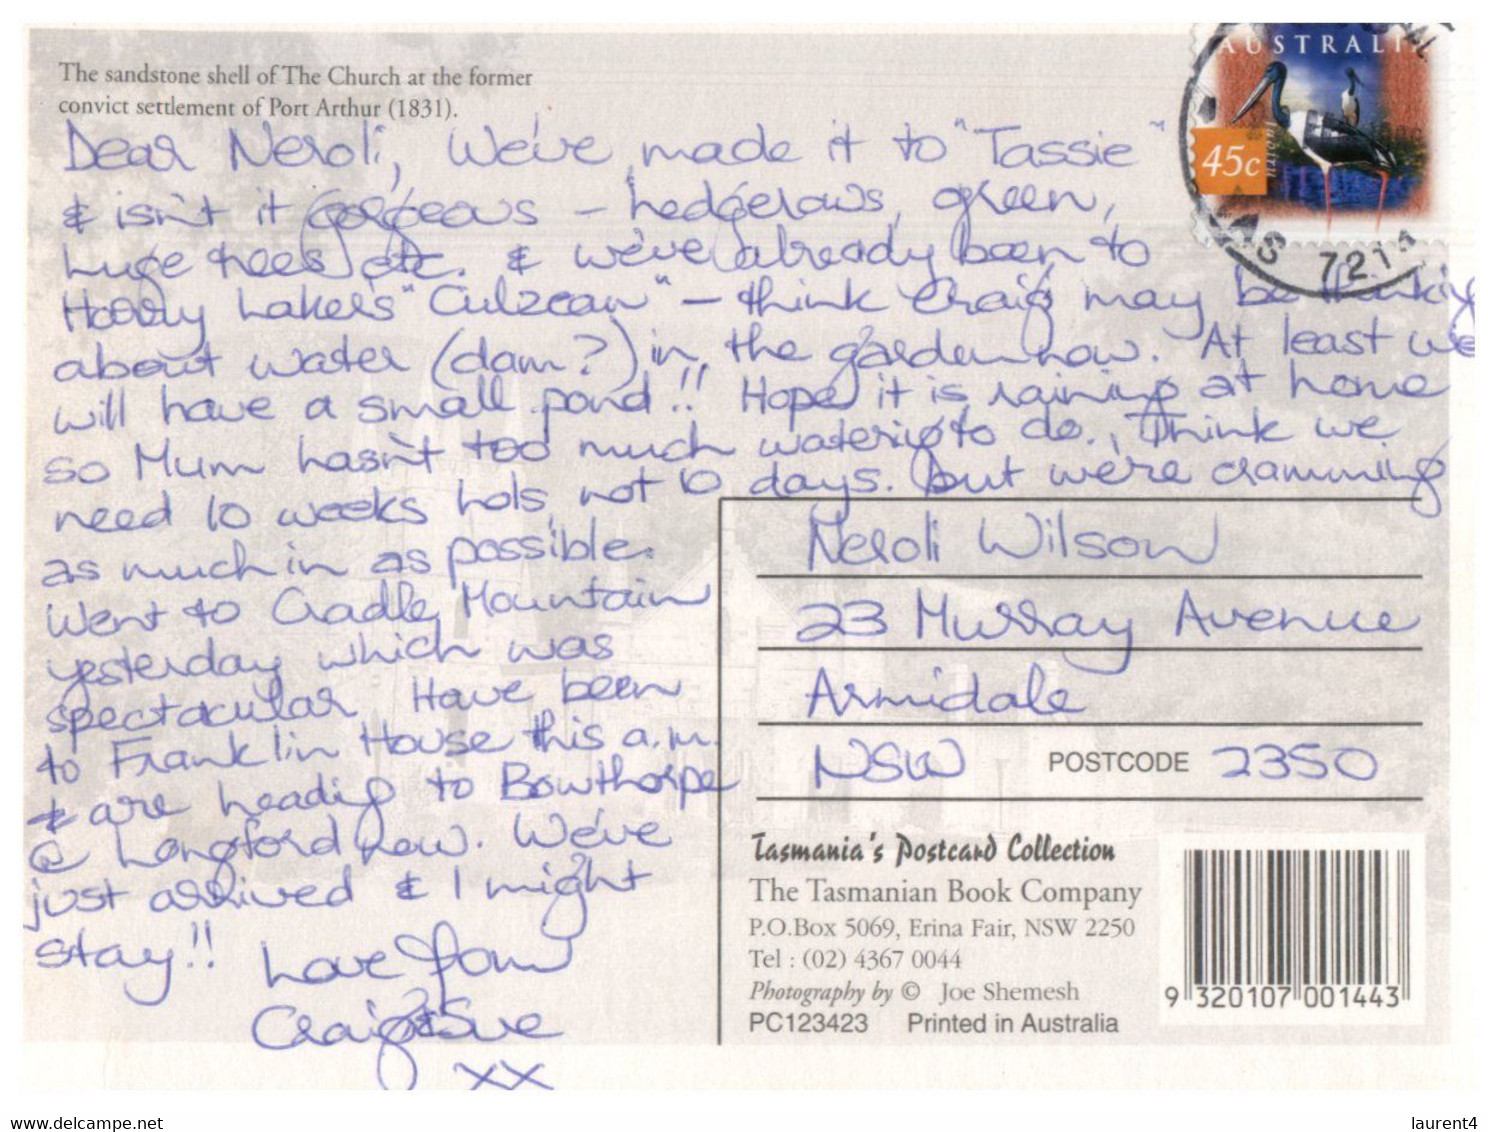 The sandstone shell of The Church at the former
convict settlement of Port Arthur (1831).
AUSTRALIA
45c
7214
Dear Neroli, We've made it to "Tassie"
& isn't it gorgeous - hedgerows, green,
huge trees etc. & we've already been to
Harry Laker's "Culzean" - think Craig may be thinking
about water (dam?) in the garden now. At least we
will have a small pond!! Hope it is raining at home
so Mum hasn't too much watering to do. Think we
need 10 weeks hols, not 10 days. but we're cramming
as much in as possible.
Went to Cradle Mountain
yesterday which was
spectacular Have been
to Franklin House this a.m.
& are heading to Bowthorpe
@ Longford now. We've
just arrived & I might
stay!! Love from
Craig & Sue
xx
Neroli Wilson
23 Murray Avenue
Armidale
NSW POSTCODE 2350
Tasmania's Postcard Collection
The Tasmanian Book Company
P.O.Box 5069, Erina Fair, NSW 2250
Tel : (02) 4367 0044
Photography by © Joe Shemesh
PC123423 Printed in Australia
9 320107 001443
www.delcampe.net
laurent4